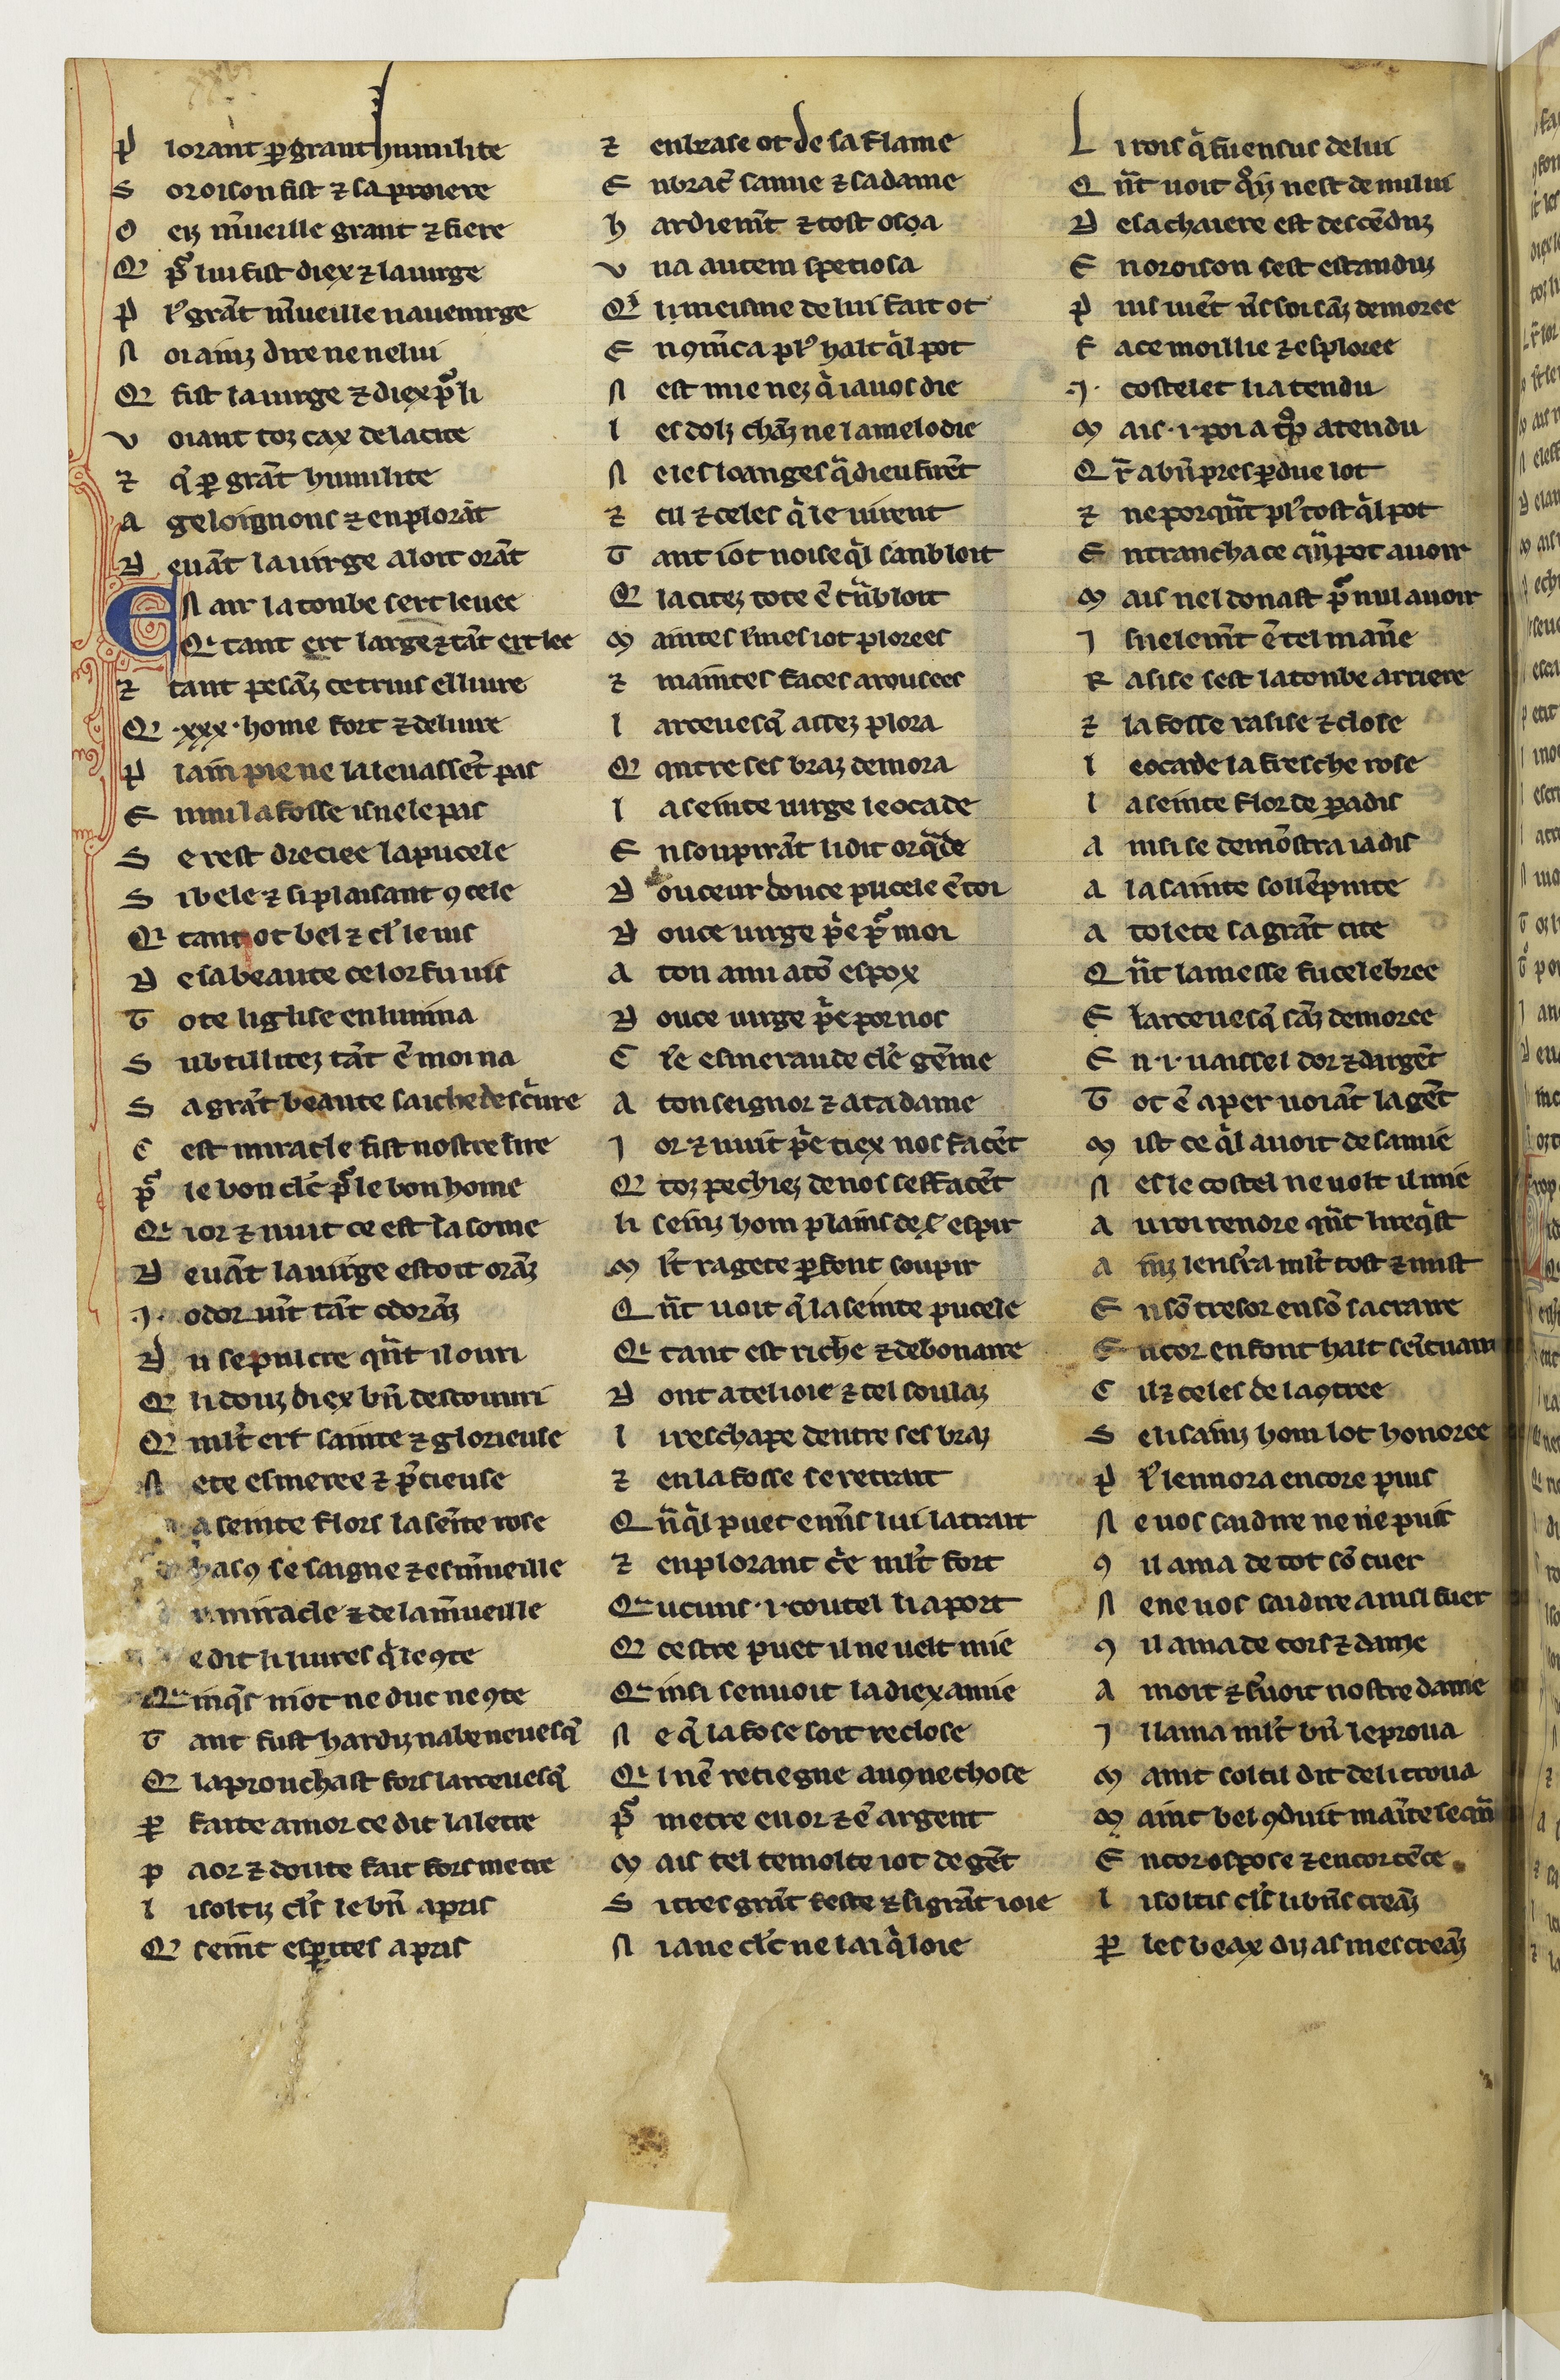 P lorant ꝑ grant humilite
S oroison fist ⁊ sa proiere
O eiz m̃ueille grant ⁊ fiere
Q p̃ lui fist diex ⁊ la uirge
P lꝰ grãt m̃ueille nauenirge
N or ainz dire ne nelui
Q fist la uirge ⁊ diex p̃ li
V oiant toz cax de la cite
⁊ q̃ ꝑ grãt humilite
A geloignons ⁊ en plorãt
D euãt la uirge aloit orãt
EN air la tonbe sert leuee
Q tant ert large ⁊ tãt ert lee
⁊ tant pesãz ce truis el liure
Q .xxx. home fort ⁊ deliure
P lain pie ne la leuassẽt pas
E nmi la fosse isnele pas
S e rest dreciee la pucele
S i bele ⁊ si plaisant ꝯ cele
Q tant ot bel ⁊ cl̃ le uis
D e sa beaute ce lor fu uis
T ote liglise enlumina
S ubtillitez tãt ẽ moi na
S a grãt beaute saiche descrire
C est miracle fist nostre sire
P̃ le bon clẽ p̃ le bon home
Q ior ⁊ nuit ce est la some
D euãt la uirge estoit orãz
.I. odor uĩt tãt odorãz
D u sepulcre qñt il ouri
Q li douz diex bñ descouuri
Q ml̃t ert sainte ⁊ glorieuse
N ete esmeree ⁊ p̃cieuse
a seinte flors la sẽte rose
hascꝯ se saigne ⁊ esm̃ueille
u miracle ⁊ de la m̃ueille
e dit li liures q̃ le ꝯte
Q inq̃s niot ne duc ne ꝯte
T ant fust hardiz nabe neuesq̃
Q laprouchast fors larceuesq̃
Ꝑ faite amor ce dit la letre
P aor ⁊ doute fait fors metre
L i soltiz cl̃s le bñ apris
Q seint esꝑites apris
⁊ enbrase ot de sa flame
E nbraĉ samie ⁊ sa dame
H ardiemẽt ⁊ tost osca
V na autem spetiosa
Q li meisme de lui fait ot
E nꝯmẽca plꝰ halt q̃l pot
N est mie nez q̃ ia uos die
L es dolz chãz ne la melodie
N e les loanges q̃ dieu firẽt
⁊ cil ⁊ celes q̃ le uirent
T ant iot noise q̃l sanbloit
Q la citez tote ẽ trẽbloit
M aintes lr̃mes iot plorees
⁊ maintes faces arousees
L arceuesq̃ assez plora
Q qntre ses braz demora
L a seinte uirge leocade
E n soupirãt li dit or q̃de
D ouceur douce pucele ẽ toi
D ouce uirge p̃e p̃ moi
A ton ami a tõ espox
D ouce uirge p̃e por nos
C lẽ esmeraude clẽ gẽme
A ton seignor ⁊ a ta dame
I or ⁊ nuit p̃e ciex nos facẽt
Q toz pechiez de nos seffacẽt
Li seinz hom plains de s̃ espir
M lt̃ ragete ꝑfont soupir
Q ñt uoit q̃ la seinte pucele
Q tant est riche ⁊ debonaire
D ont a tel ioie ⁊ tel soulaz
L i reschape dentre ses braz
⁊ en la fosse se retrait
Q ñq̃l puet enuñs lui la trait
⁊ en plorant c̃e ml̃t fort
Q ucuns .i. coutel li aport
Q cestre puet il ne uelt mie
Q insi senuoit la diex amie
N e q̃ la fose soit reclose
Q l nẽ retiegne auqne chose
P̃ metre en or ⁊ ẽ argent
M ais tel temolte iot de gẽt
S i tres grãt feste ⁊ si grãt ioie
N ia ne clẽc ne lai q̃ loie
L i rois q̃ fu ensus de lui
Q ñt uoit q̃l ni nest de mil ui
D e sa chaiere est descẽduz
E n oroison sest estanduz
P uis uiẽt uñs soi sãz demoree
F ace moillie ⁊ esploree
.I. costelet li a tendu
M ais .i. poi a tꝑ̃ atendu
Q r̃ a bñ pres ꝑdue lot
⁊ ne porqñt plꝰ tost q̃l pot
E n trancha ce qñ pot auoir
M ais nel donast p̃ nul auoir
I snelemẽt ẽ tel mañe
R asise sest la tonbe arriere
⁊ la fosse rasise ⁊ close
L eocade la fresche rose
L a seinte flor de ꝑadis
A insi se demõstra iadis
A la sainte sollẽpnite
A tolete sa grãt cite
Q ñt la messe fu celebree
E larceuesq̃ sãz demoree
E n .i. uaissel dor ⁊ dargẽt
T ot ẽ apert uoiãt la gẽt
M ist ce q̃l auoit de samie
N es le costel ne uolt il mie
A u roi rendre qñt li req̃st
A inz lensr̃a ml̃t tost ⁊ mist
E n sõ tresor en sõ sacraire
E ncor en font halt seĩtuaire
C il ⁊ celes de la ꝯtree
S e li sainz hom lot honoree
P lꝰ lennora encore puis
N e uos sai dire ne ne puis
Ꝯ il ama de tot sõ cuer
N e ne uos sai dire a nisl fuer
Ꝯ il ama de cors ⁊ dame
A moit ⁊ sr̃uoit nostre dame
I l lama ml̃t bñ le proua
M aint soltil dit de li troua
M aint bel ꝯduit mainte seqñ
E ncor espose ⁊ encor cẽce
L i soltis cl̃s li bñs creãz
Ꝑ les beax diz as mescreãz